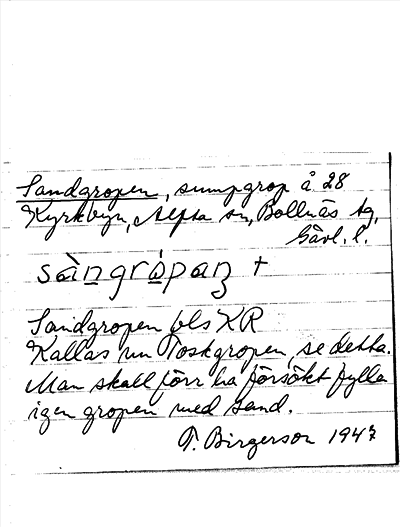 Sandgropen, sumpgrop å 28
Kyrkbyn, Alfta sn, Bollnäs tg,
Gävl. l.
sàngrópan +
Sandgropen fls KR
Kallas nu Toskgropen, se detta.
Man skall förr ha försökt fylla
igen gropen med sand.
F. Birgerson 1947